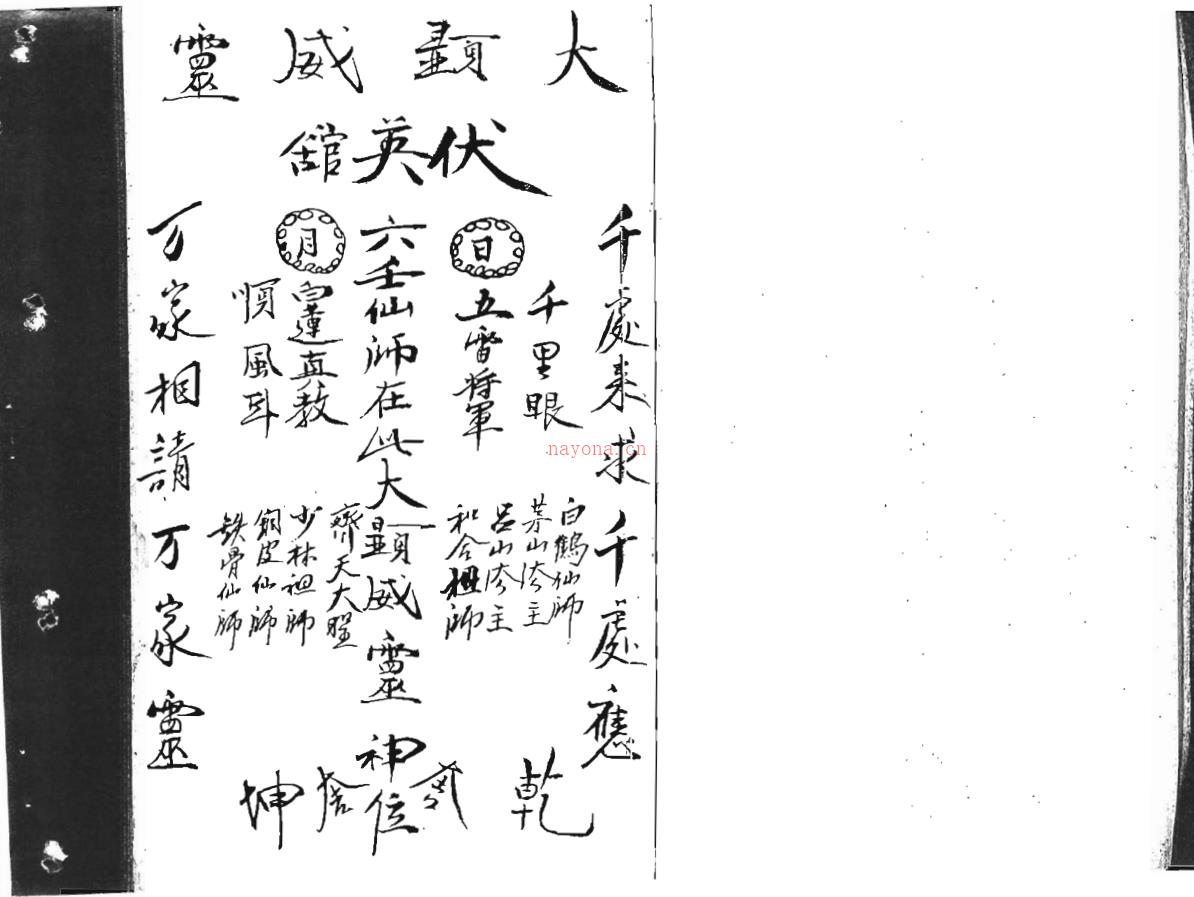 大顯威靈
伏英舘
千處來求千處應
千里眼
日
五雷將軍
六壬仙師在此大顯威靈神位
月
白蓮直教
順風耳
白鶴仙師
茅山法主
呂山法主
和合祖師
齊天大聖
少林祖師
銅皮仙師
鉄骨仙師
万家相請万家靈
乾
坤
nayona.cn